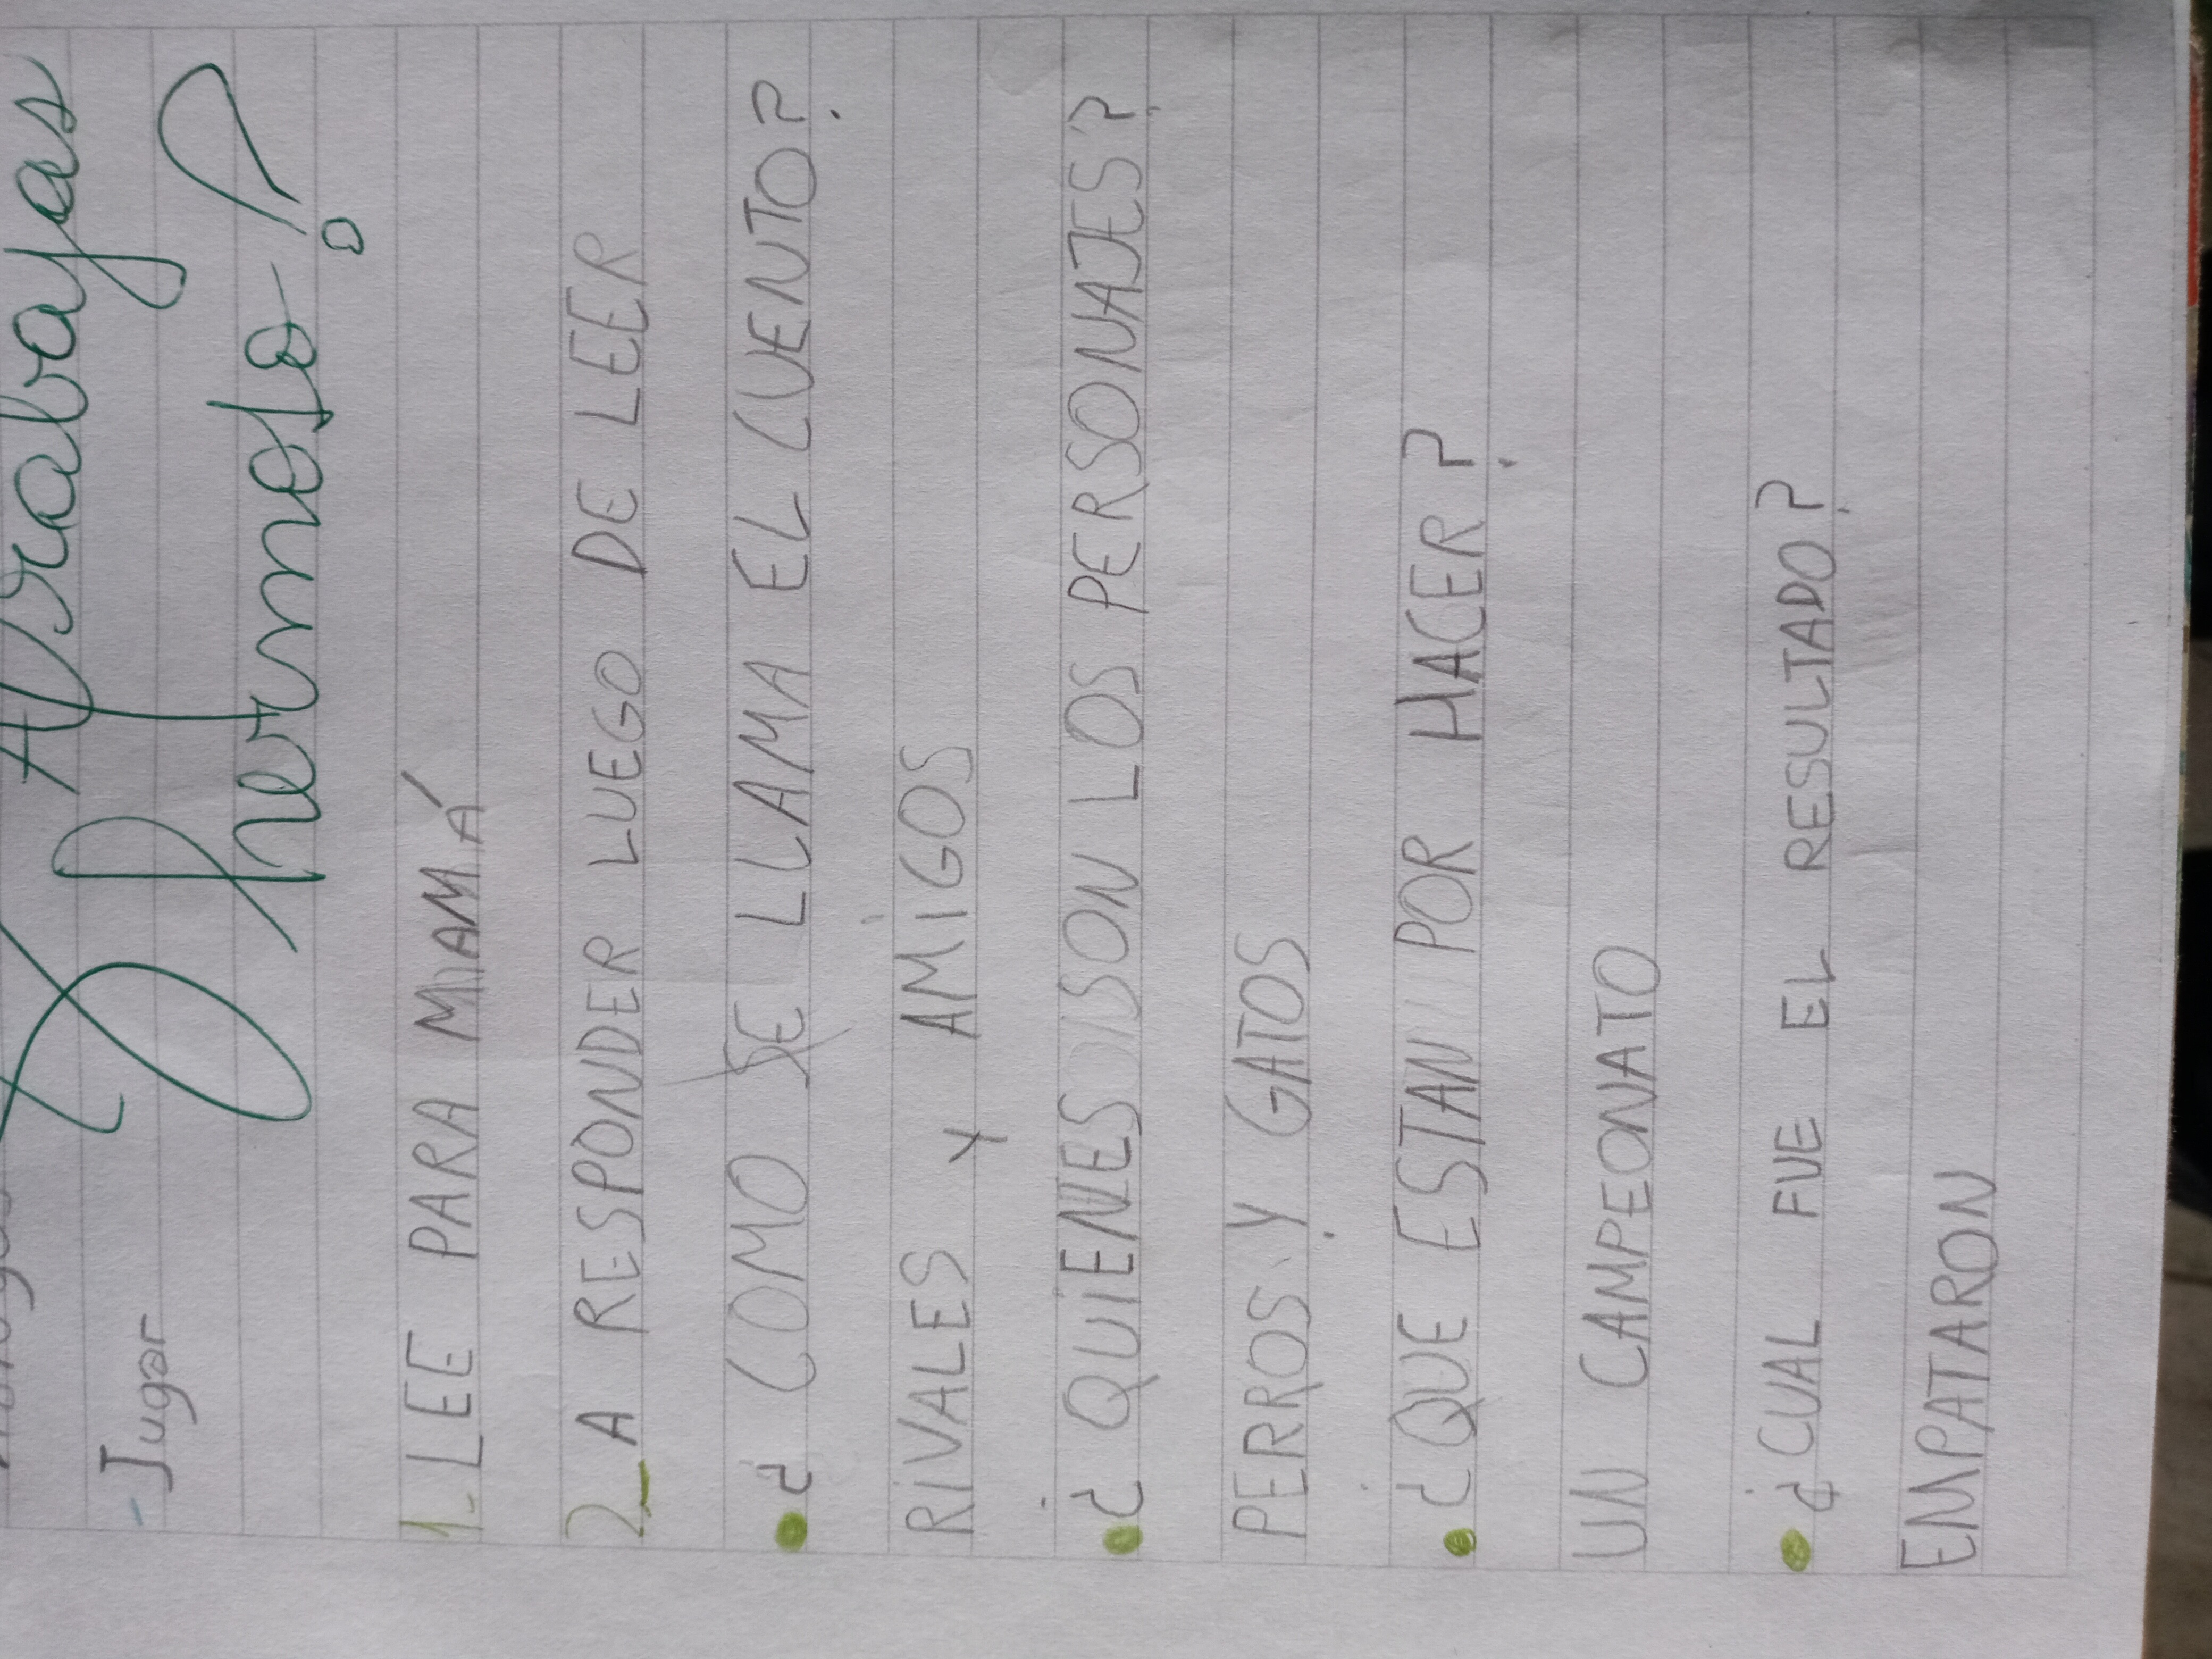 Trabajas
hermoso!
- Jugar
1- LEE PARA MIAMÁ
2_ A RESPONDER LUEGO DE LEER
• ¿ COMO SE LLAMA EL CUENTO?
RIVALES Y AMIGOS
• ¿ QUIENES SON LOS PERSONAJES?
PERROS Y GATOS
• ¿QUE ESTAN POR HACER?
UN CAMPEONATO
• ¿CUAL FUE EL RESULTADO?
EMPATARON